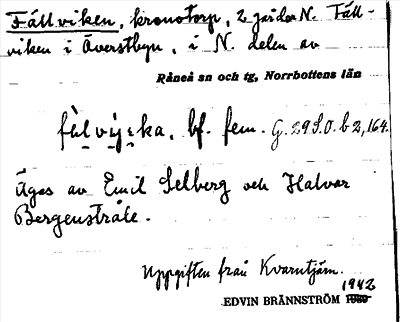 Fällviken, kronotorp, 2 gårdar N. Fäll-
viken i Överstbyn, i N. delen av
Råneå sn och tg, Norrbottens län
fèlvìska, bf. fem. G. 29 S.O. b 2, 164.
Äges av Emil Selberg och Halvar
Bergenstråle.
Uppgiften från Kvarntjärn.
1942
EDVIN BRÄNNSTRÖM 1930